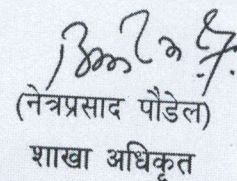 (नेत्रप्रसाद पौडेल)
शाखा अधिकृत